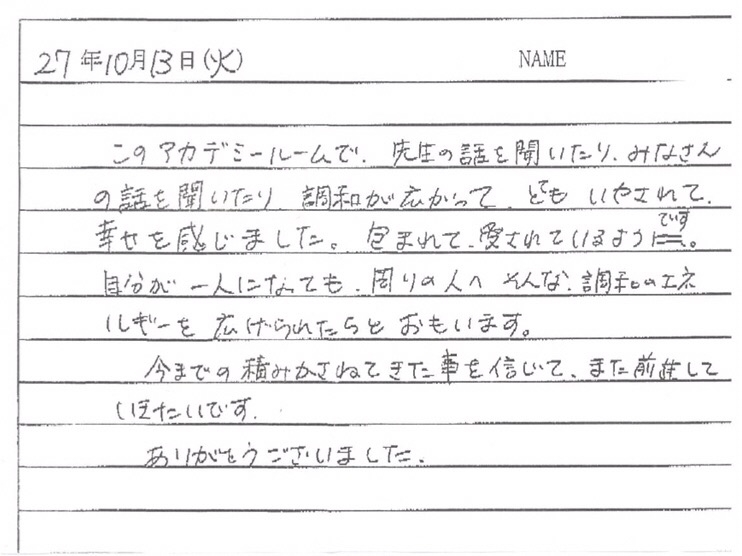 27年10月13日(火) NAME
このアカデミールームで、先生の話を聞いたり、みなさん
の話を聞いたり、調和が広がって、とても いやされて、
幸せを感じました。包まれて、愛されているようです。
自分が 一人になっても、周りの人へ そんな、調和のエネ
ルギーを 広げられたらと おもいます。
今までの 積みかさねてきた 事を信じて、また前進して
いきたいです。
ありがとうございました。